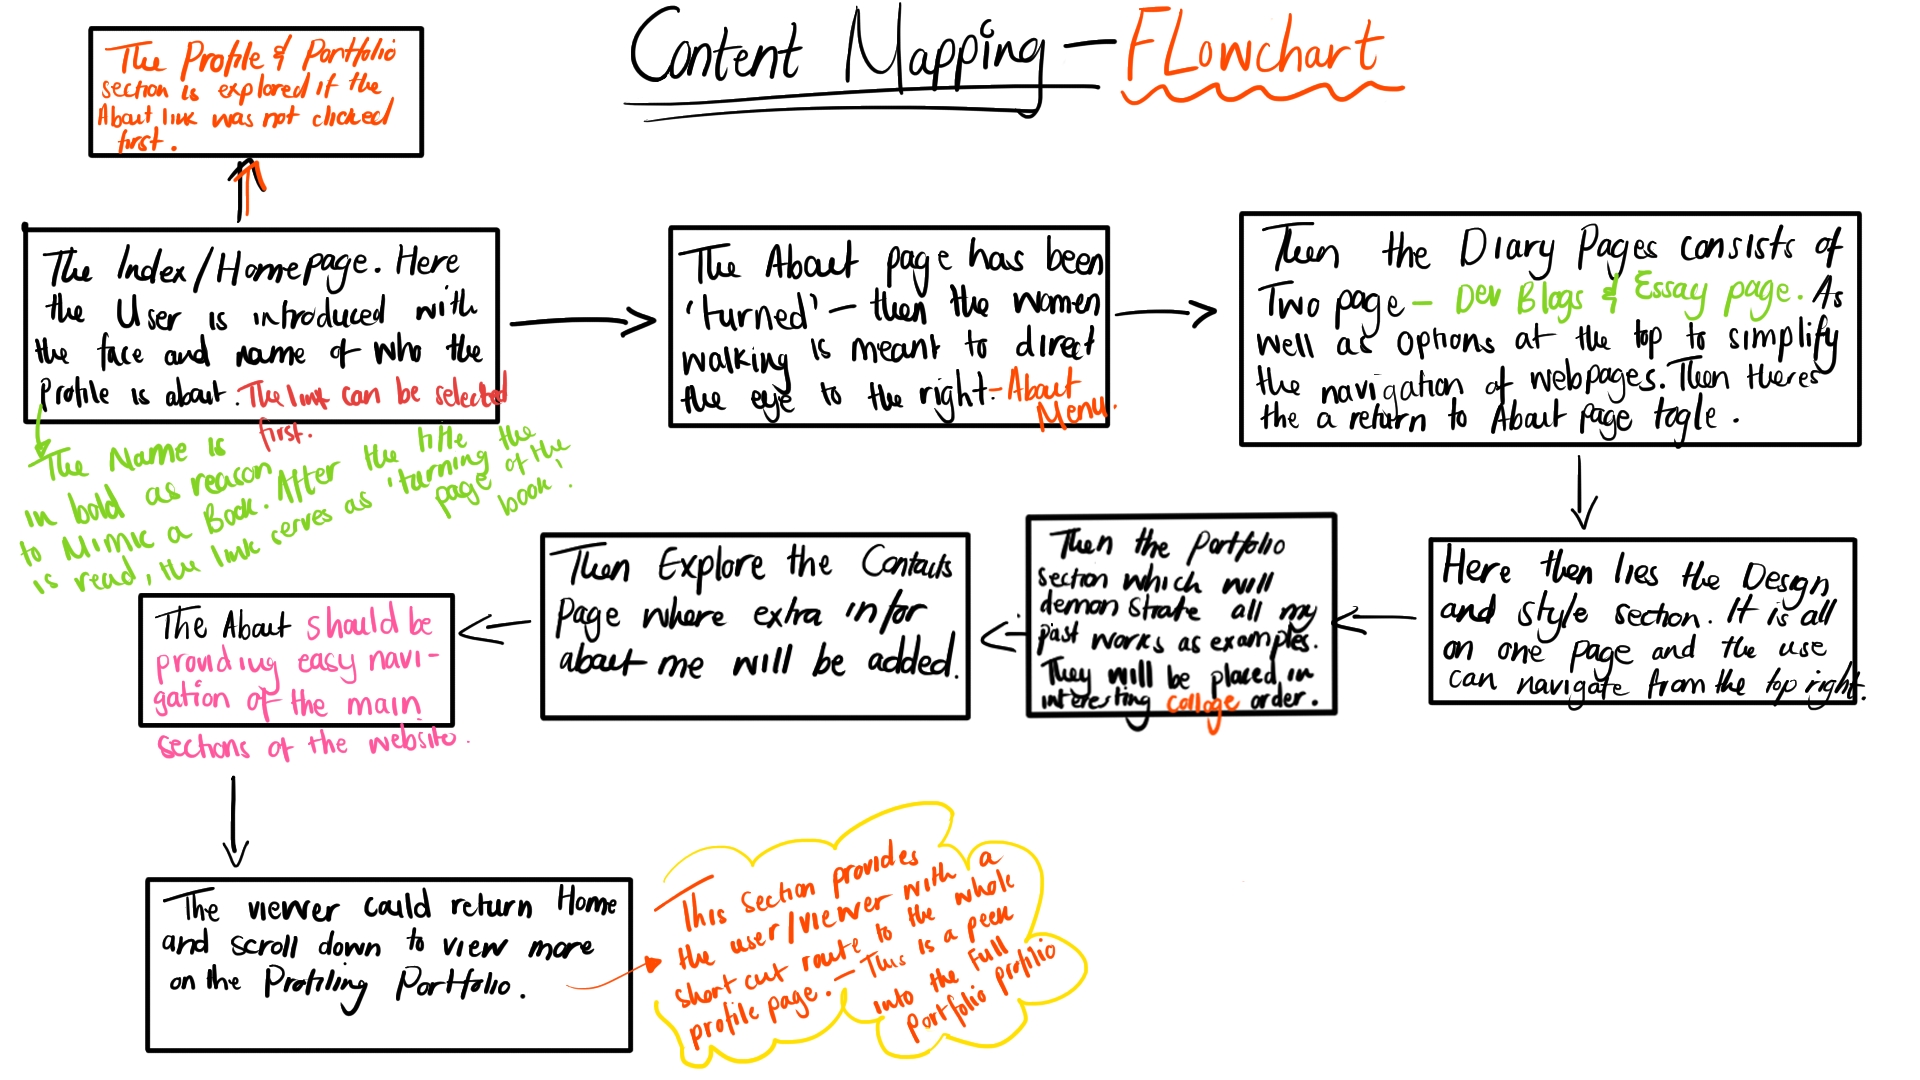 Content Mapping — FLowchart
The Profile & Portfolio
section is explored if the
About link was not clicked
first.
The Index/Homepage. Here
the User is introduced with
the face and name of who the
Profile is about. The link can be selected
first.
The Name is
in bold as reason
to Mimic a Book. After the title
is read, the link serves as 'turning the
page of the
book'.
The About page has been
'turned' – then the women
walking is meant to direct
the eye to the right – About
Menu.
Then the Diary Pages consists of
Two page – Dev Blogs & Essay page. As
well as options at the top to simplify
the navigation of webpages. Then theres
the a return to About page togle.
Here then lies the Design
and style section. It is all
on one page and the use
can navigate from the top right.
Then the Portfolio
section which will
demonstrate all my
past works as examples.
They will be placed in
interesting collage order.
Then Explore the Contacts
Page where extra infor
about me will be added.
The About should be
providing easy navi-
gation of the main
sections of the website.
The viewer could return Home
and scroll down to view more
on the Profiling Portfolio.
This section provides
the user/viewer with a
short cut route to the whole
profile page. – This is a peek
into the Full
portfolio profilio